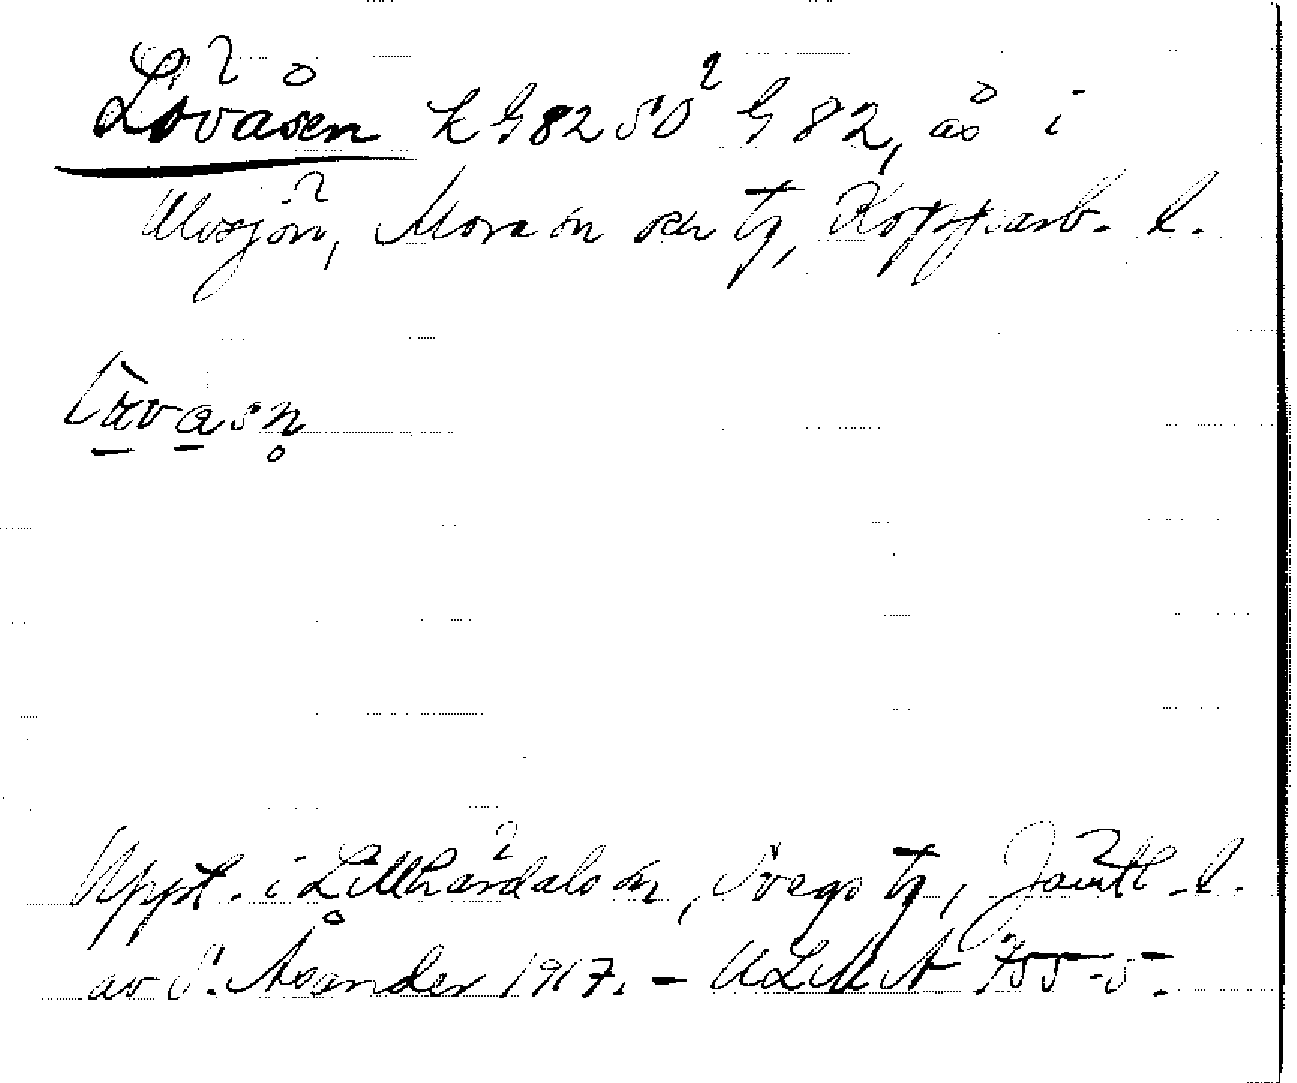 Lövåsen k G 82 SO² G 82, ås i
Ulvsjön, Mora sn och tg, Kopparb. l.
Lövåsn̥
Uppt. i Lillhärdals sn, Svegs tg, Jämtl. l.
av S. Åsander 1917. – ULMA 755-5.